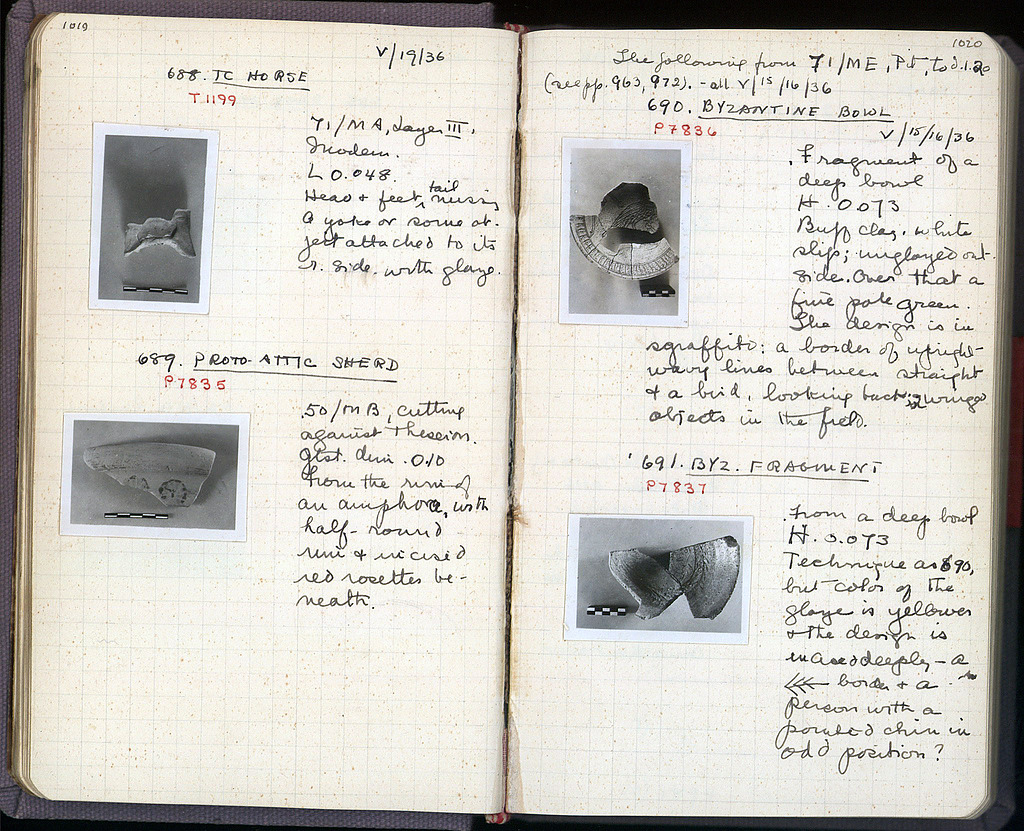 1019
V/19/36
688. TC HORSE
T 1199
71/MA, Layer III.
Modern.
L 0.048.
Head & feet, tail missing
A yoke or some ob-
ject attached to its
r. side. with glaze.
689. PROTO-ATTIC SHERD
P7835
50/MB, cutting
against Theseion.
Gtst. dim. 0.10
From the rim of
an amphora, with
half-round
rim & incised
red rosettes be-
neath.
1020
The following from 71/ME, Pit, to d. 1.20
(see pp. 963, 972). - all V/15/16/36
690. BYZANTINE BOWL
P7836
V/15/16/36
Fragment of a
deep bowl
H. 0.073
Buff clay, white
slip; unglazed out-
side. Over that a
fine pale green.
The design is in
sgraffito: a border of upright
wavy lines between straight
& a bird, looking back, winged
objects in the field.
691. BYZ. FRAGMENT
P7837
From a deep bowl
H. 0.073
Technique as 690,
but color of the
glaze is yellower
& the design is
incised deeply – a
border & a
person with a
pointed chin in
odd position?